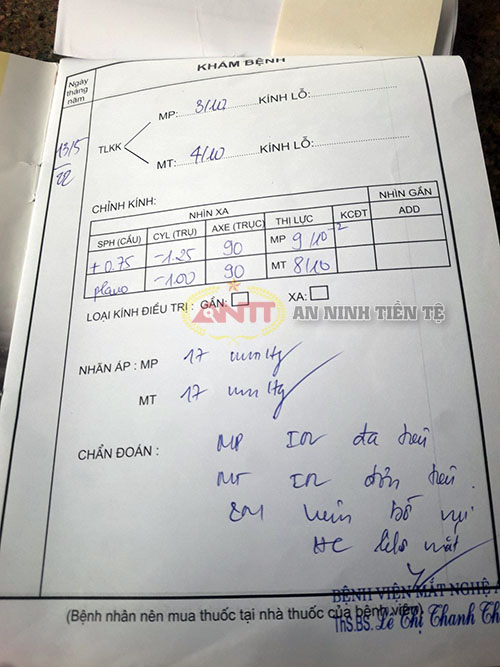 KHÁM BỆNH
Ngày tháng năm
13/5
22
TLKK
MP: 3/10 KÍNH LỖ:
MT: 4/10 KÍNH LỖ:
CHỈNH KÍNH:
NHÌN XA NHÌN GẦN
SPH (CẦU) CYL (TRỤ) AXE (TRỤC) THỊ LỰC KCĐT ADD
+0.75 -1.25 90 MP 9/10 -2
plano -1.00 90 MT 8/10
LOẠI KÍNH ĐIỀU TRỊ : GẦN: XA:
ANTT AN NINH TIỀN TỆ
NHÃN ÁP : MP 17 mmHg
MT 17 mmHg
CHẨN ĐOÁN :
MP
MT
HC khô mắt
BỆNH VIỆN MẮT NGHỆ A
ThS.BS. Lê Thị Thanh Th
(Bệnh nhân nên mua thuốc tại nhà thuốc của bệnh viện)